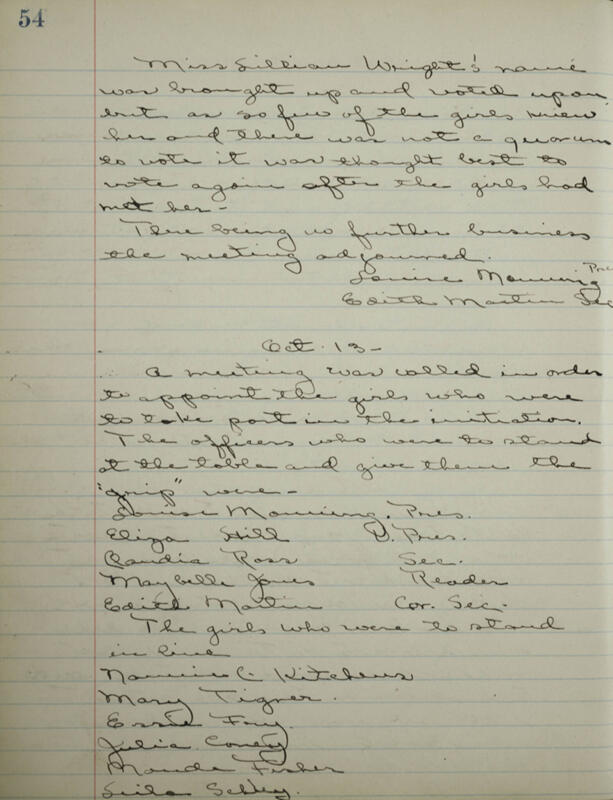 54
Miss Lillian Wright's name
was brought up and voted upon
but as so few of the girls knew
her and there was not a quorum
to vote it was thought best to
vote again after the girls had
met her -
There being no further business
the meeting adjourned.
Louise Manning Pres
Edith Martin Sec
Oct. 13 -
A meeting was called in order
to appoint the girls who were
to take part in the initiation.
The officers who were to stand
at the table and give them the
"grip" were -
Louise Manning. Pres.
Eliza Hill V. Pres.
Claudia Ross Sec.
Maybelle Jones Reader
Edith Martin Cor. Sec.
The girls who were to stand
in line
Nannie C. Kitchens
Mary Tigner.
Essie
Julia Coney
Maude Fisher
Leila Schley.